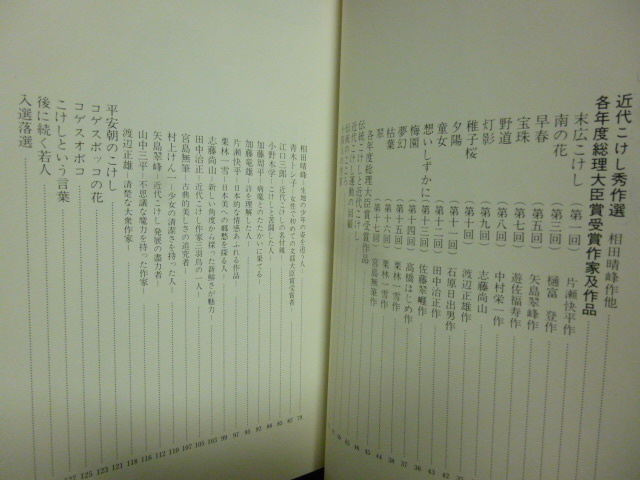 近代こけし秀作選 相田晴峰作他
各年度総理大臣賞受賞作家及作品
末広こけし (第一回) 片瀬快平作
南の花 (第三回) 樋富 登作
早春 (第五回) 矢島翠峰作
宝珠 (第七回) 遊佐福寿作
野道 (第八回) 中村栄一作
灯影 (第九回) 志藤尚山
稚子桜 (第十回) 渡辺正雄作
夕陽 (第十一回) 田中治正作
童女 (第十二回) 石原日出男作
想いしずかに (第十三回) 佐藤翠𪩘作
梅園 (第十四回) 高橋はじめ作
夢幻 (第十五回) 栗林一雪作
枯葉 (第十六回) 栗林一雪作
翠 (第十七回) 宮島無筆作
各年度総理大臣賞受賞作品
伝統こけしと近代こけし
近代こけし運動の回顧
相田晴峰―生地の少年の姿を追う人―
青木トシ子―女性で初めての大臣大臣賞受賞者
江口三郎―近代こけしの名付親―
小野木学―こけしと苦闘した人
加藤周平―病魔とのたたかいに果てる―
加藤竜雄―詩を理解した人―
片瀬快平―日本的な情感あふれる作品
栗林一雪―日本の郷愁を探る人
志藤尚山―新しい角度から探った新鮮さが魅力―
田中治正―近代こけし作家三羽烏の一人―
宮島無筆―古典的美しさの追究者―
村上げん一―少女の清潔さを持った人―
矢島翠峰―近代こけし発展の尽力者
山中三平―不思議な魔力を持った作家
渡辺正雄―清楚な大衆作家―
平安朝のこけし
コゲスボッコの花
コゲスオボコ
こけしという言葉
後に続く若人
入選落選